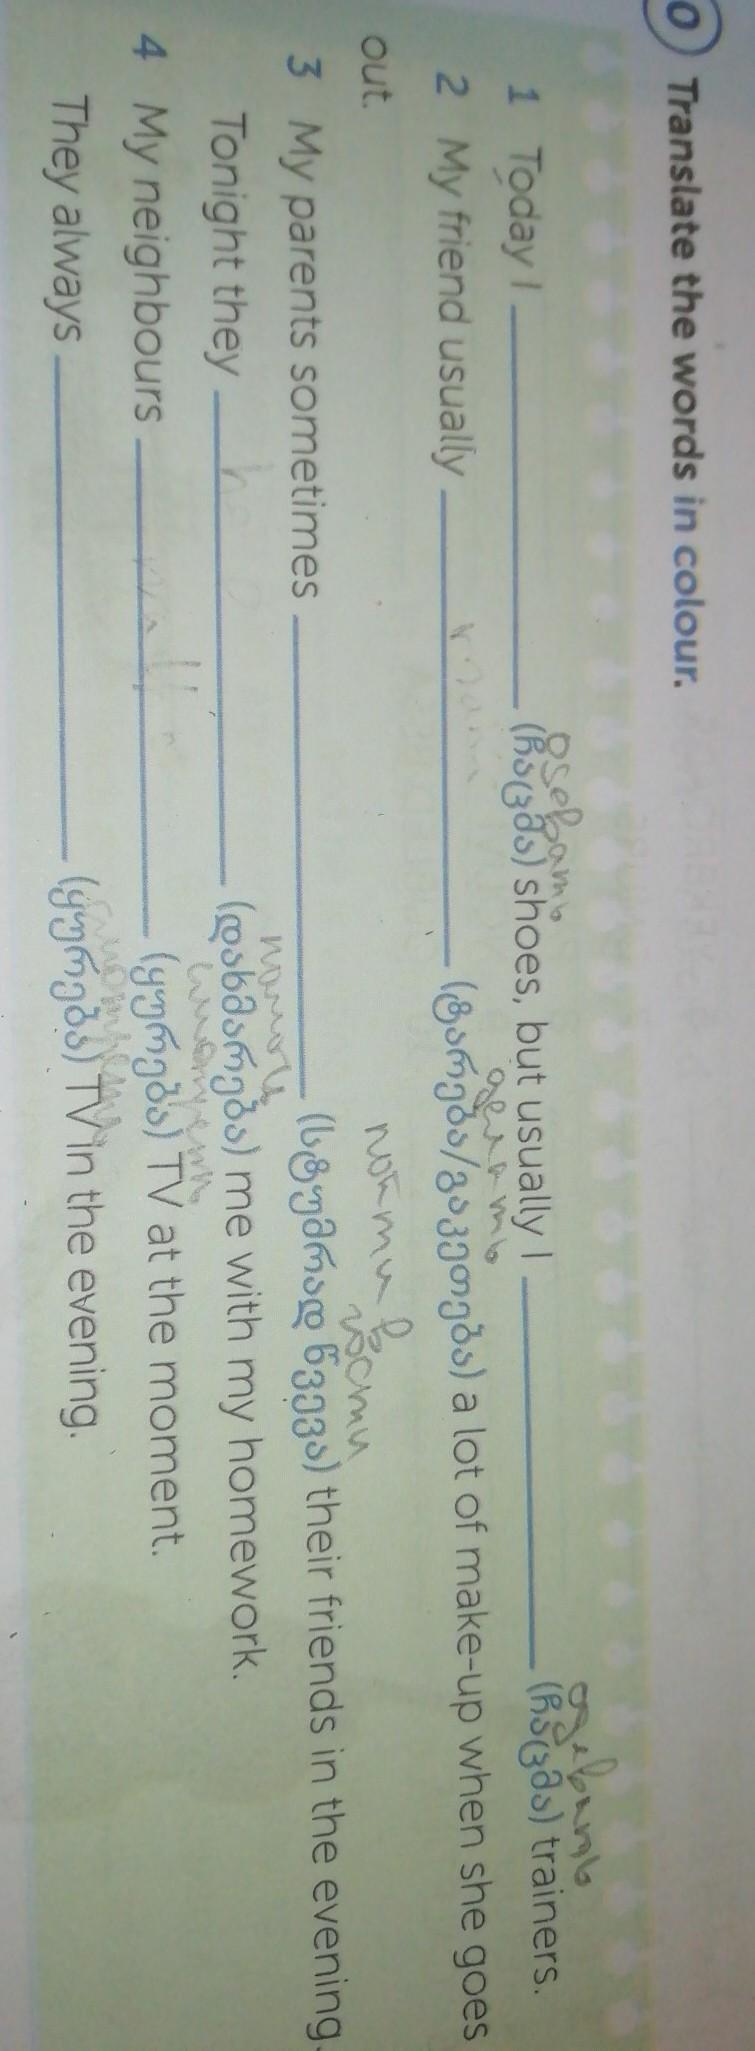 0 Translate the words in colour.
одевать одевать
1 Today I ______ (ჩაცმა) shoes, but usually I ______ (ჩაცმა) trainers.
2 My friend usually ______ (ტარება/გაკეთება) a lot of make-up when she goes
out.
3 My parents sometimes ______ (სტუმრად წვევა) their friends in the evening.
Tonight they ______ (დახმარება) me with my homework.
4 My neighbours ______ (ყურება) TV at the moment.
They always ______ (ყურება) TV in the evening.